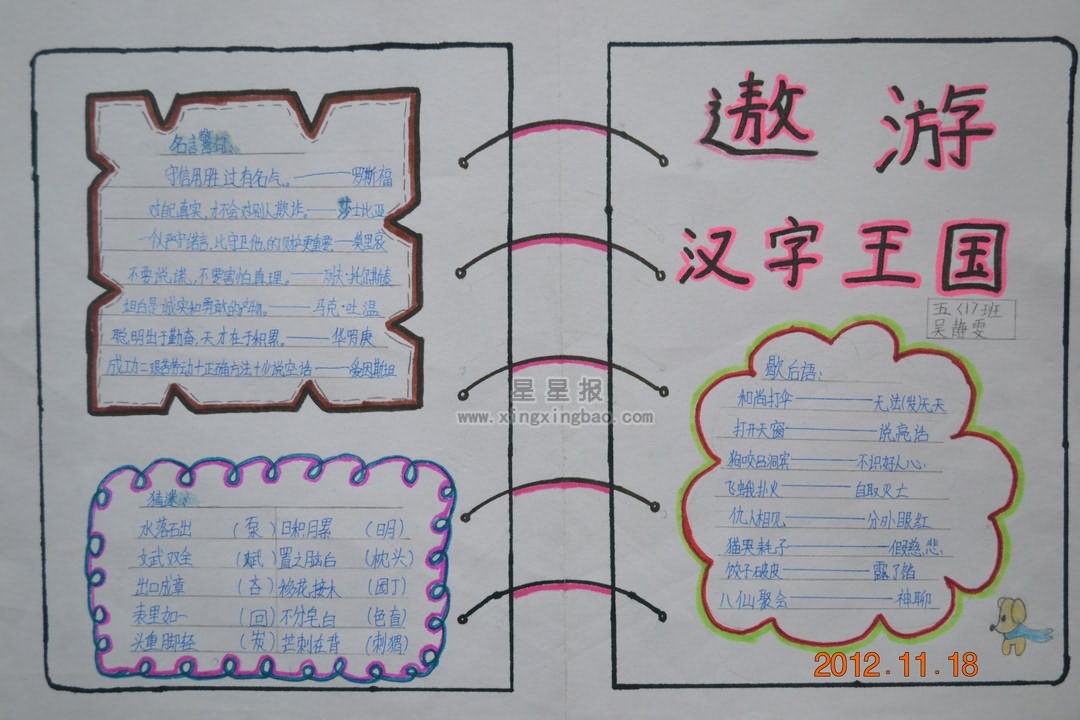 遨 游
汉字王国
五〈1〉班
吴静雯
名言警句:
守信用胜过有名气。——罗斯福
对自己真实,才不会对别人欺诈。——莎士比亚
不要说谎,不要害怕真理。——列夫·托尔斯泰
坦白是诚实和勇敢的产物。——马克·吐温
聪明出于勤奋,天才在于积累。——华罗庚
成功=艰苦劳动+正确方法+少说空话——爱因斯坦
猜迷:
水落石出 (泵) 日积月累 (日月)
文武双全 (斌) 置之脑后 (枕头)
出口成章 (咨) 移花接木 (园丁)
表里如一 (回) 不分皂白 (色盲)
头重脚轻 (炭) 芒刺在背 (刺猬)
歇后语:
和尚打伞——无法(发)无天
打开天窗——说亮话
狗咬吕洞宾——不识好人心
飞蛾扑火——自取灭亡
仇人相见——分外眼红
猫哭耗子——假慈悲
饺子破皮——露了馅
八仙聚会——神聊
星星报
www.xingxingbao.com
2012.11.18